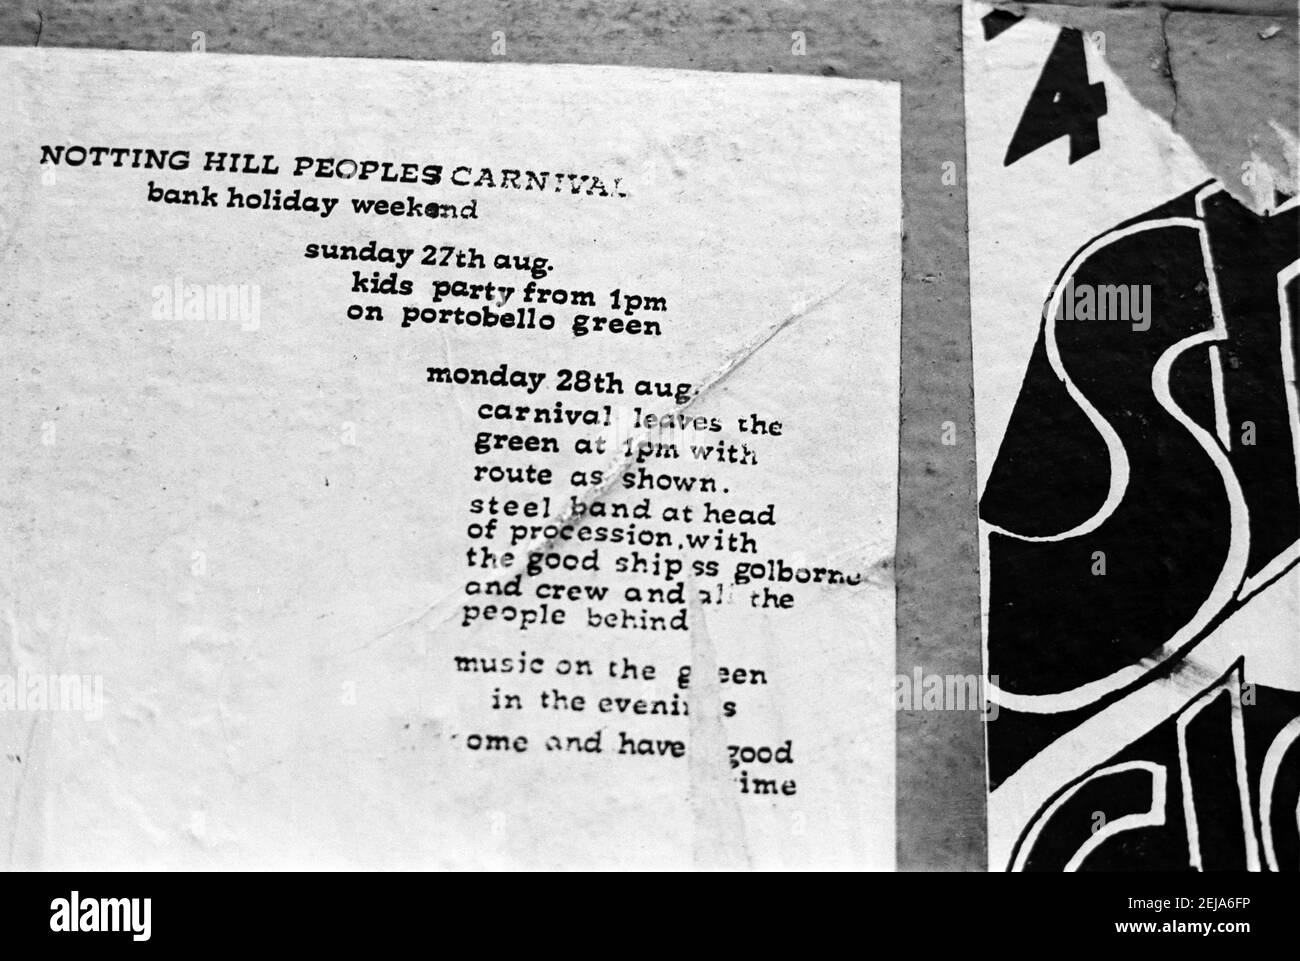 NOTTING HILL PEOPLES CARNIVAL
bank holiday weekend
sunday 27th aug.
kids party from 1pm
on portobello green
monday 28th aug.
carnival leaves the
green at 1pm with
route as shown.
steel band at head
of procession, with
the good ship ss golborne
and crew and all the
people behind
music on the g een
in the eveni s
ome and have good
ime
4
alamy
Image ID: 2EJA6FP
www.alamy.com